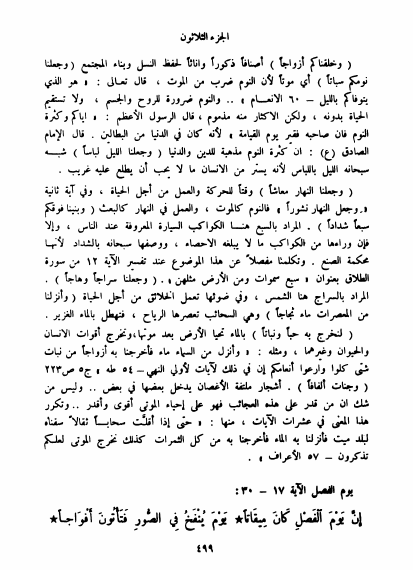 الجزء الثلاثون
( وخلقناكم أزواجاً ) أصنافاً ذكوراً واناثاً لحفظ النسل وبناء المجتمع ( وجعلنا
نومكم سباتاً ) أي موتاً لأن النوم ضرب من الموت ، قال تعالى : « هو الذي
يتوفاكم بالليل – ٦٠ الانعام » .. والنوم ضرورة للروح والجسم ، ولا تستقيم
الحياة بدونه ، ولكن الاكثار منه مذموم ، قال الرسول الأعظم : « اياكم وكثرة
النوم فان صاحبه فقير يوم القيامة » لأنه كان في الدنيا من البطالين . قال الإمام
الصادق (ع) : ان كثرة النوم مذهبة للدين والدنيا ( وجعلنا الليل لباساً ) شبــه
سبحانه الليل باللباس لأنه يستر من الانسان ما لا يحب أن يطلع عليه غريب .
( وجعلنا النهار معاشاً ) وقتاً للحركة والعمل من أجل الحياة ، وفي آية ثانية
« وجعل النهار نشوراً » فالنوم كالموت ، والعمل في النهار كالبعث ( وبنينا فوقكم
سبعاً شداداً ) . المراد بالسبع هنــا الكواكب السيارة المعروفة عند الناس ، وإلا
فإن وراءها من الكواكب ما لا يبلغه الاحصاء ، ووصفها سبحانه بالشداد لأنهـا
محكمة الصنع . وتكلمنا مفصلاً عن هذا الموضوع عند تفسير الآية ١٢ من سورة
الطلاق بعنوان « سبع سموات ومن الأرض مثلهن » . ( وجعلنا سراجاً وهاجاً ) .
المراد بالسراج هنا الشمس ، وفي ضوئها تعمل الخلائق من أجل الحياة ( وأنزلنا
من المعصرات ماء ثجاجاً ) وهي السحائب تعصرها الرياح ، فتهطل بالماء الغزير .
( لنخرج به حباً ونباتاً ) بالماء تحيا الأرض بعد موتها، ونخرج أقوات الانسان
والحيوان وغيرهما ، ومثله : « وأنزل من السماء ماء فأخرجنا به أزواجاً من نبات
شتى كلوا وارعوا أنعامكم إن في ذلك لآيات لأولي النهى – ٥٤ طه » ج٥ ص٢٢٣
( وجنات ألفافاً ) . أشجار ملتفة الأغصان يدخل بعضها في بعض .. وليس من
شك ان من قدر على هذه العجائب فهو على إحياء الموتى أقوى وأقدر .. وتكرر
هذا المعنى في عشرات الآيات ، منها : « حتى إذا أقلّت سحابــاً ثقالاً سقناه
لبلد ميت فأنزلنا به الماء فأخرجنا به من كل الثمرات كذلك نخرج الموتى لعلكم
تذكرون – ٥٧ الأعراف » .
يوم الفصل الآية ١٧ – ٣٠ :
إِنَّ يَوْمَ الْفَصْلِ كَانَ مِيقَاتًا★ يَوْمَ يُنْفَخُ فِي الصُّورِ فَتَأْتُونَ أَفْوَاجـاً★
٤٩٩